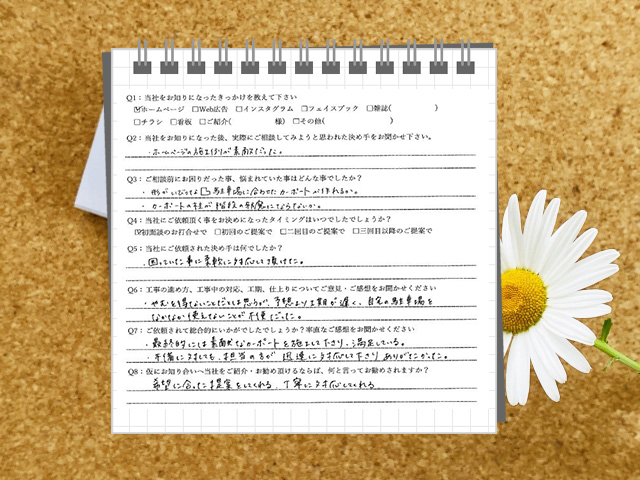 Q1：当社をお知りになったきっかけを教えて下さい
☑ホームページ　□Web広告　□インスタグラム　□フェイスブック　□雑誌(　　　　　)
□チラシ　□看板　□ご紹介(　　　　　様)　□その他(　　　　　　　　)
Q2：当社をお知りになった後、実際にご相談してみようと思われた決め手をお聞かせ下さい。
・ホームページの施工例が素敵だった。
Q3：ご相談前にお困りだった事、悩まれていた事はどんな事でしたか？
・形がいびつな 駐車場に合わせたカーポートが作れるか。
・カーポートの柱が階段の邪魔にならないか。
Q4：当社にご依頼頂く事をお決めになったタイミングはいつでしたでしょうか？
☑初面談のお打合せで　□初回のご提案で　□二回目のご提案で　□三回目以降のご提案で
Q5：当社にご依頼された決め手は何でしたか？
・困っていた事に柔軟に対応して頂けた。
Q6：工事の進め方、工事中の対応、工期、仕上りについてご意見・ご感想をお聞かせください
・やむを得ないことだとは思うが、予想より工期が遅く、自宅の駐車場を
なかなか使えないことが不便だった。
Q7：ご依頼されて総合的にいかがでしたでしょうか？率直なご感想をお聞かせください
・最終的には素敵なカーポートを施工して下さり、満足している。
・不備に対しても、担当の方が迅速に対応して下さり ありがたかった。
Q8：仮にお知り合いへ当社をご紹介・お勧め頂けるならば、何と言ってお勧めされますか？
希望に合った提案をしてくれる。丁寧に対応してくれる